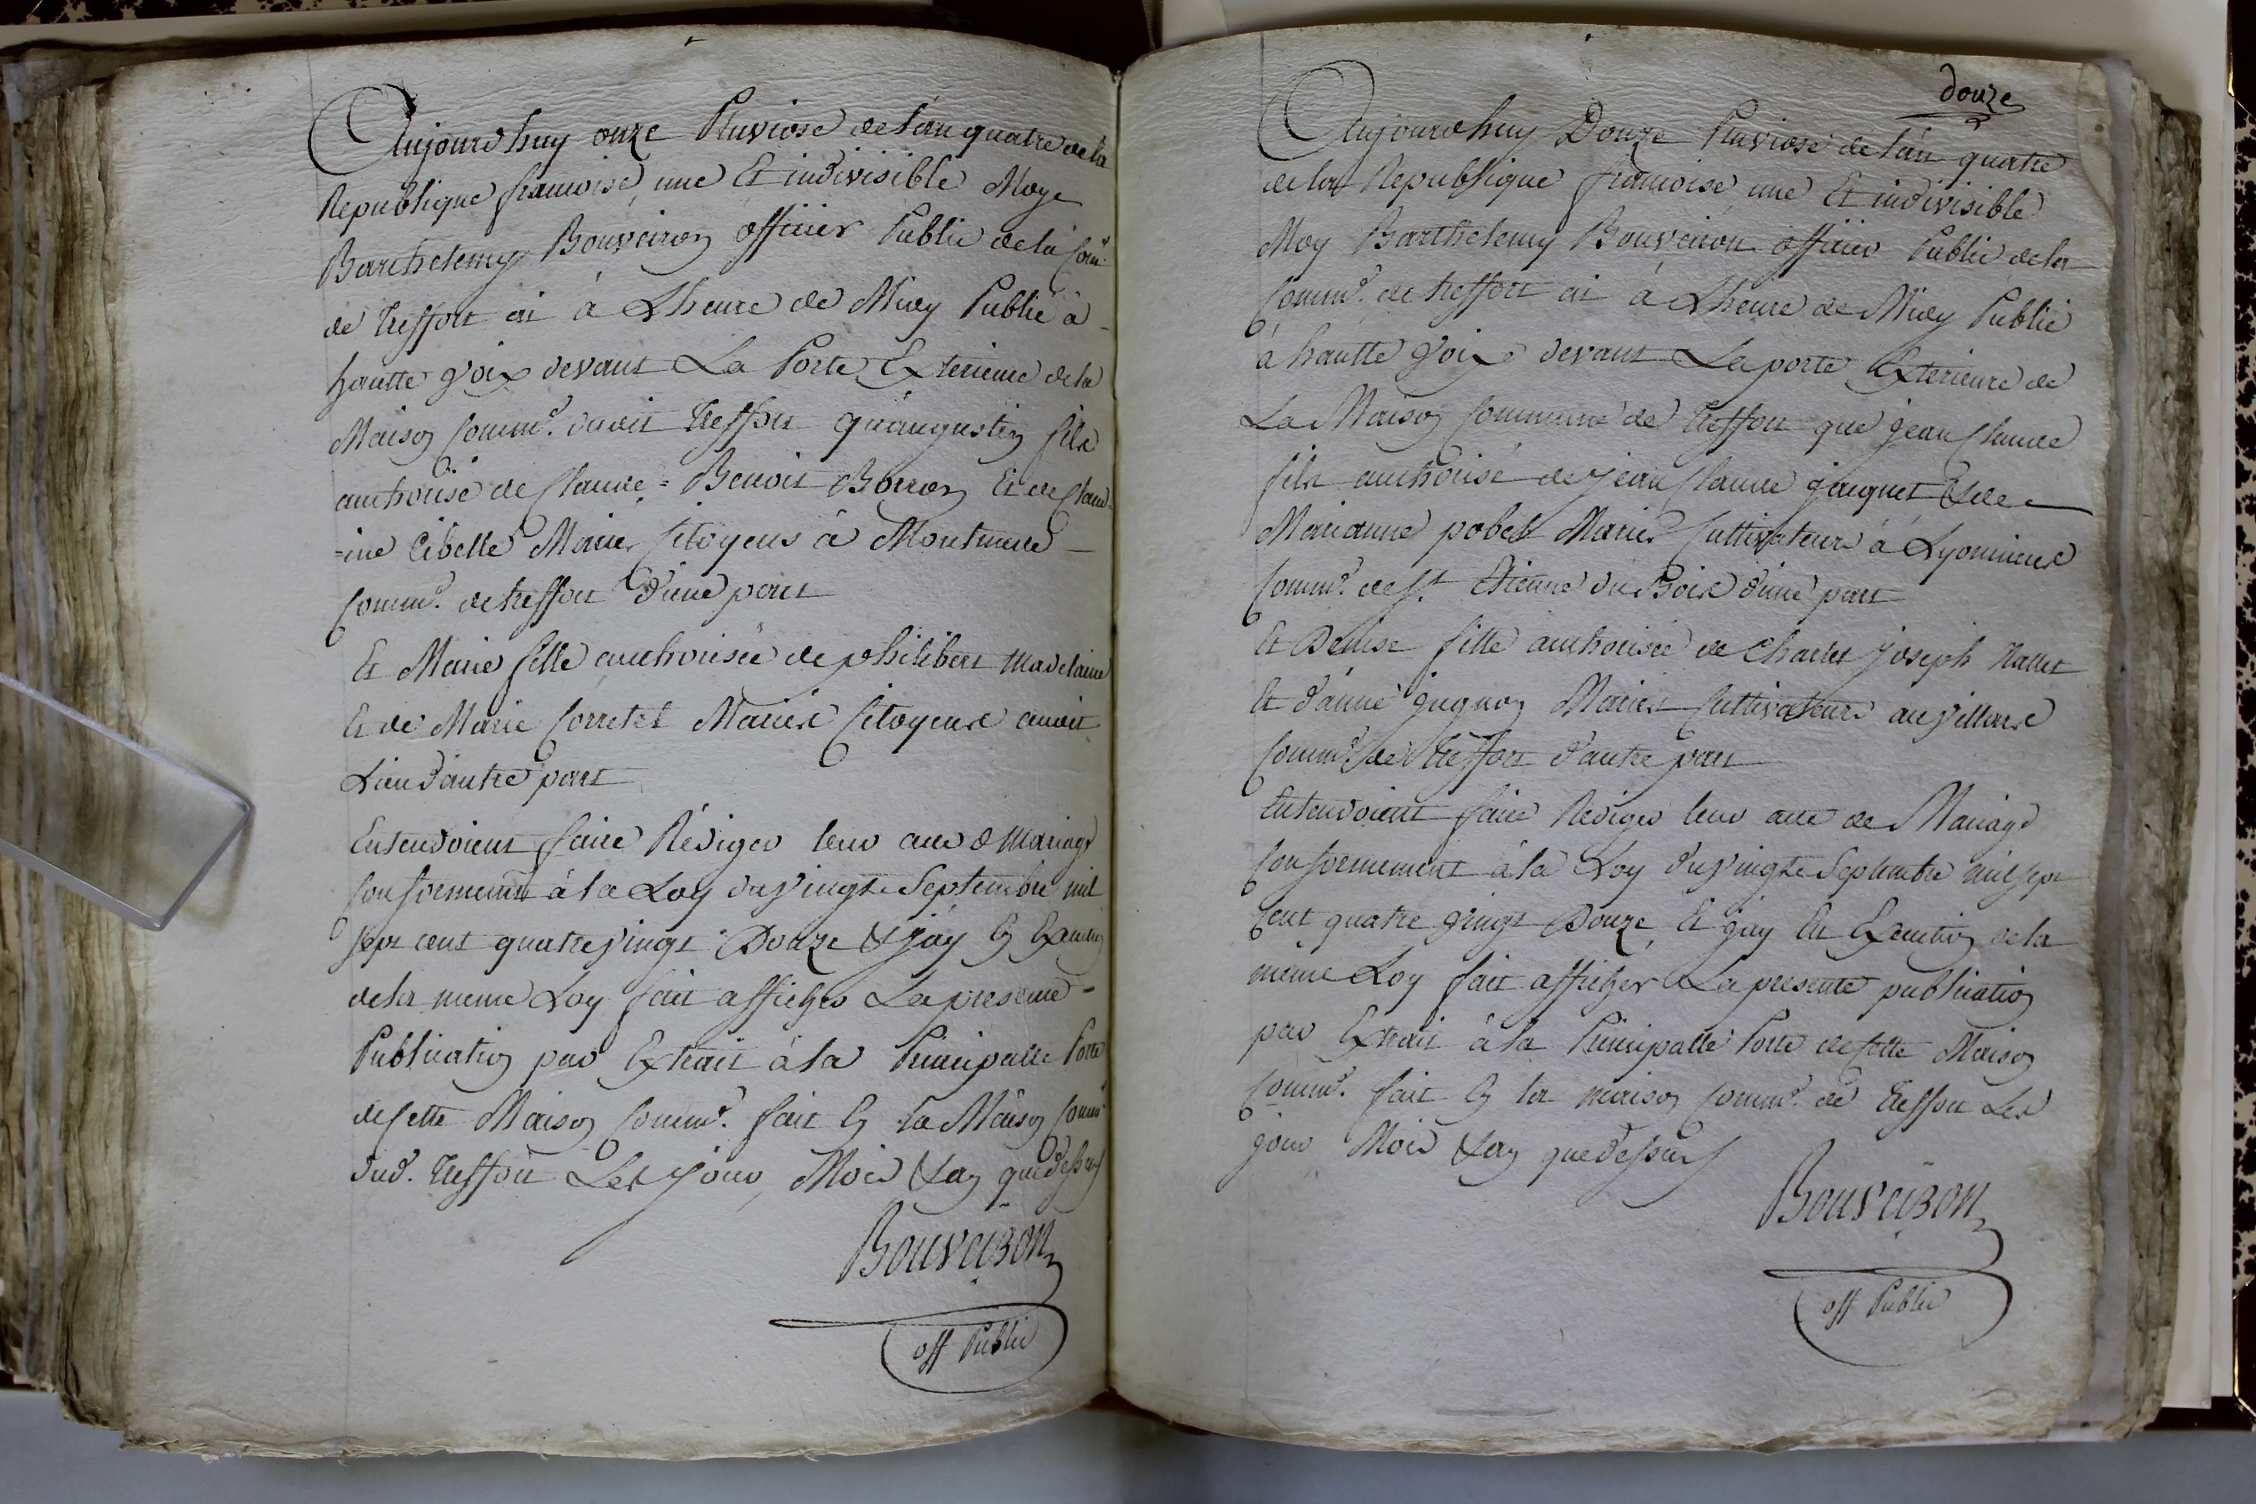 Aujourdhuy onze Pluviose de l'an quatre de la
Republique francoise, une Et indivisible Moy
Barthelemy Bouveiron officier Public de la Com.
de treffort ai à Lheure de Midy Publié à
hautte voix devant La Porte Exterieure de la
Maison Comm.e dudit treffort qu'augustin fils
authorisé de Claude = Benoit Borron Et de Claud
=ine Cibelle Mariés Citoyens à Montmerle
Comm.e de treffort d'une part
Et Marie fille authorisée de philibert Madelaine
Et de Marie Corretel Mariés Citoyens audit
Lieu d'autre part
Entendoient faire Rédiger leur acte de Mariage
Conformement à la Loy du vingt Septembre mil
sept cent quatre vingt Douze & jay En Execution
de la meme Loy fait afficher La presente
Publication par Extrait à la Principalle Porte
de Cette Maison Comm.e fait En la Maison Comm.e
dud. treffort Les jour, Mois & an que dessus
Bouveiron
off Public
douze
Aujourdhuy Douze Pluviose de l'an quatre
de la Republique francoise, une Et indivisible
Moy Barthelemy Bouveiron officier Public de la
Comm.e de treffort ai à Lheure de Midy Publié
à hautte Voix devant La porte Exterieure de
La Maison Commune de treffort que jean Claude
fils authorisé de jean Claude jacquet & de
Marianne pobel Mariés Cultivateurs à Lyonnieres
Comm.e de St Etienne du Bois d'une part
Et Denise fille authorisée de Charles joseph
Et d'anne Mariés Cultivateurs au Villard
Comm.e de treffort d'autre part
Entendoient faire Rediger leur acte de Mariage
Conformement à la Loy du vingt Septembre mil sept
Cent quatre vingt Douze, Et jay En Execution de la
même Loy fait afficher La presente publication
par Extrait à la Principalle Porte de Cette Maison
Comm.e fait En la maison Comm.e de treffort Les
jour Mois & an que dessus
Bouveiron
off Public